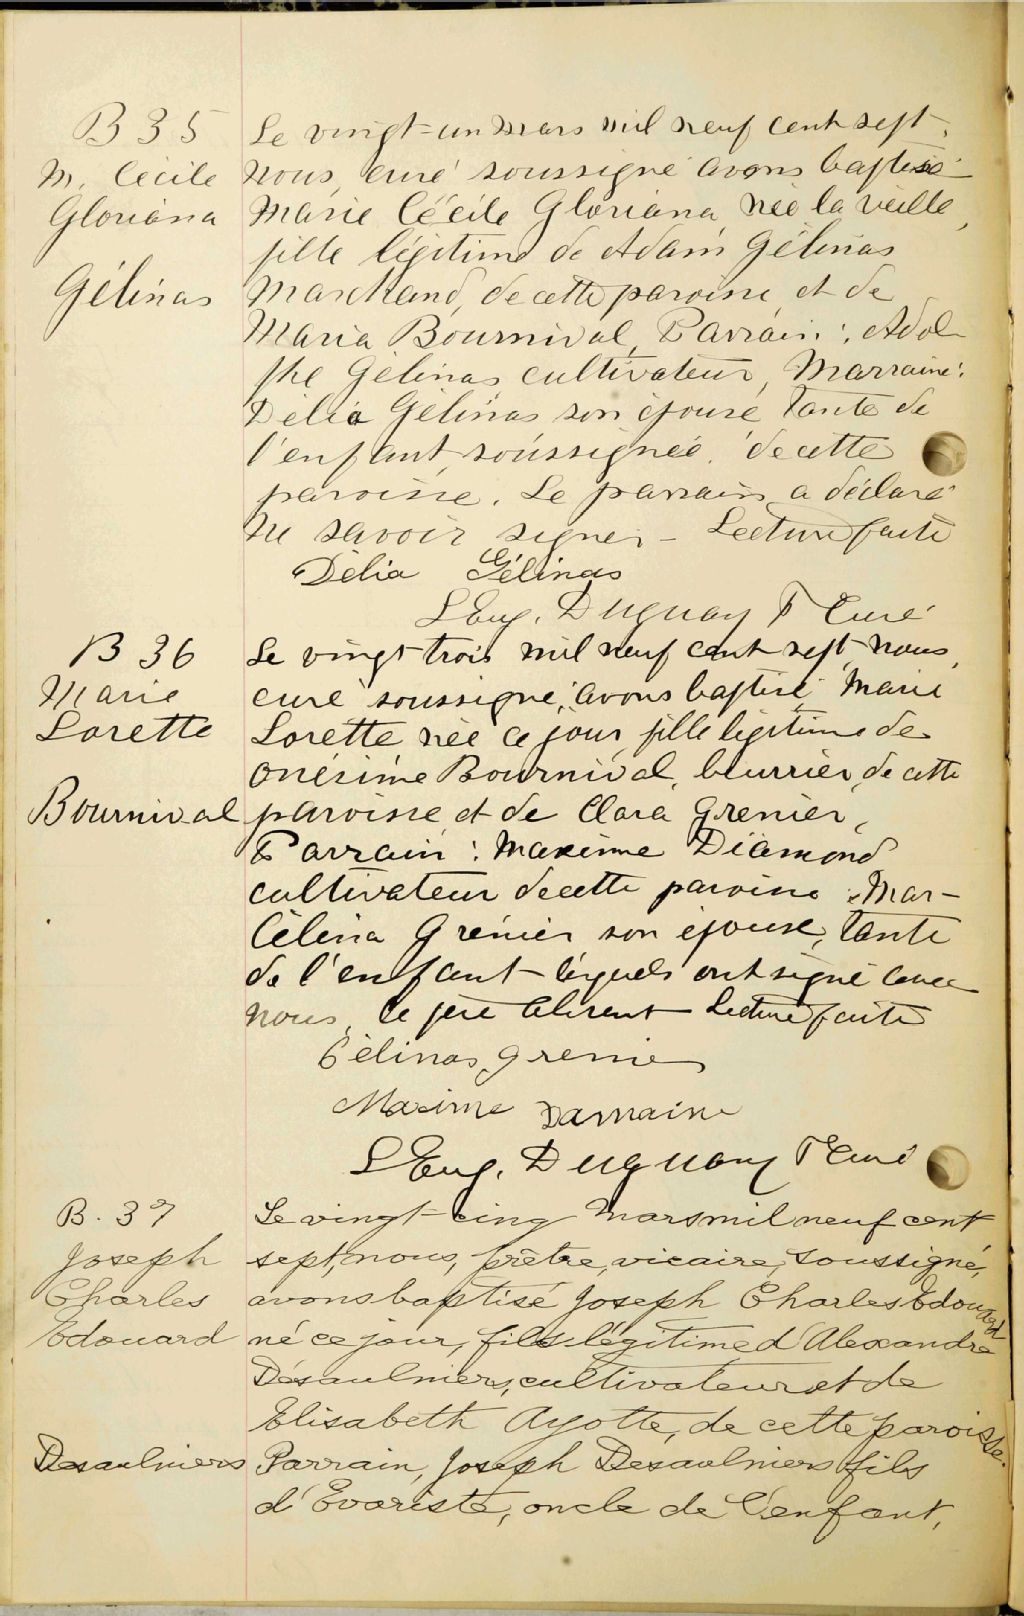 B 35
M. Cécile
Gloriana
Gélinas
Le vingt-un Mars mil neuf cent sept,
nous, curé soussigné avons baptisé
Marie Cécile Gloriana née la veille,
fille légitime de Adam Gélinas
Marchand, de cette paroisse et de
Maria Bournival, Parrain : Adol
phe Gélinas cultivateur, Marraine :
Délia Gélinas son épouse, tante de
l'enfant, soussignée, de cette
paroisse. Le parrain a déclaré
ne savoir signer - Lecture faite
Délia Gélinas
L Eug. Duguay Ptre Curé
B 36
Marie
Lorette
Bournival
Le vingt trois mil neuf cent sept, nous,
curé soussigné, avons baptisé Marie
Lorette née ce jour, fille légitime de
Onésime Bournival, beurrier, de cette
paroisse et de Clara Grenier,
Parrain : Maxime Diamond
cultivateur de cette paroisse, Mar-
Célina Grenier son épouse, tante
de l'enfant lesquels ont signé avec
nous, le père absent Lecture faite
Célinas Grenier
Maxime
L Eug. Duguay Ptre Curé
B. 37
Joseph
Charles
Edouard
Desaulniers
Le vingt-cinq Mars mil neuf cent
sept, nous, prêtre, vicaire, soussigné,
avons baptisé Joseph Charles Edouard
né ce jour, fils légitime d'Alexandre
Désaulniers, cultivateur et de
Elisabeth Ayotte, de cette paroisse.
Parrain, Joseph Desaulniers fils
d'Evariste, oncle de l'enfant,